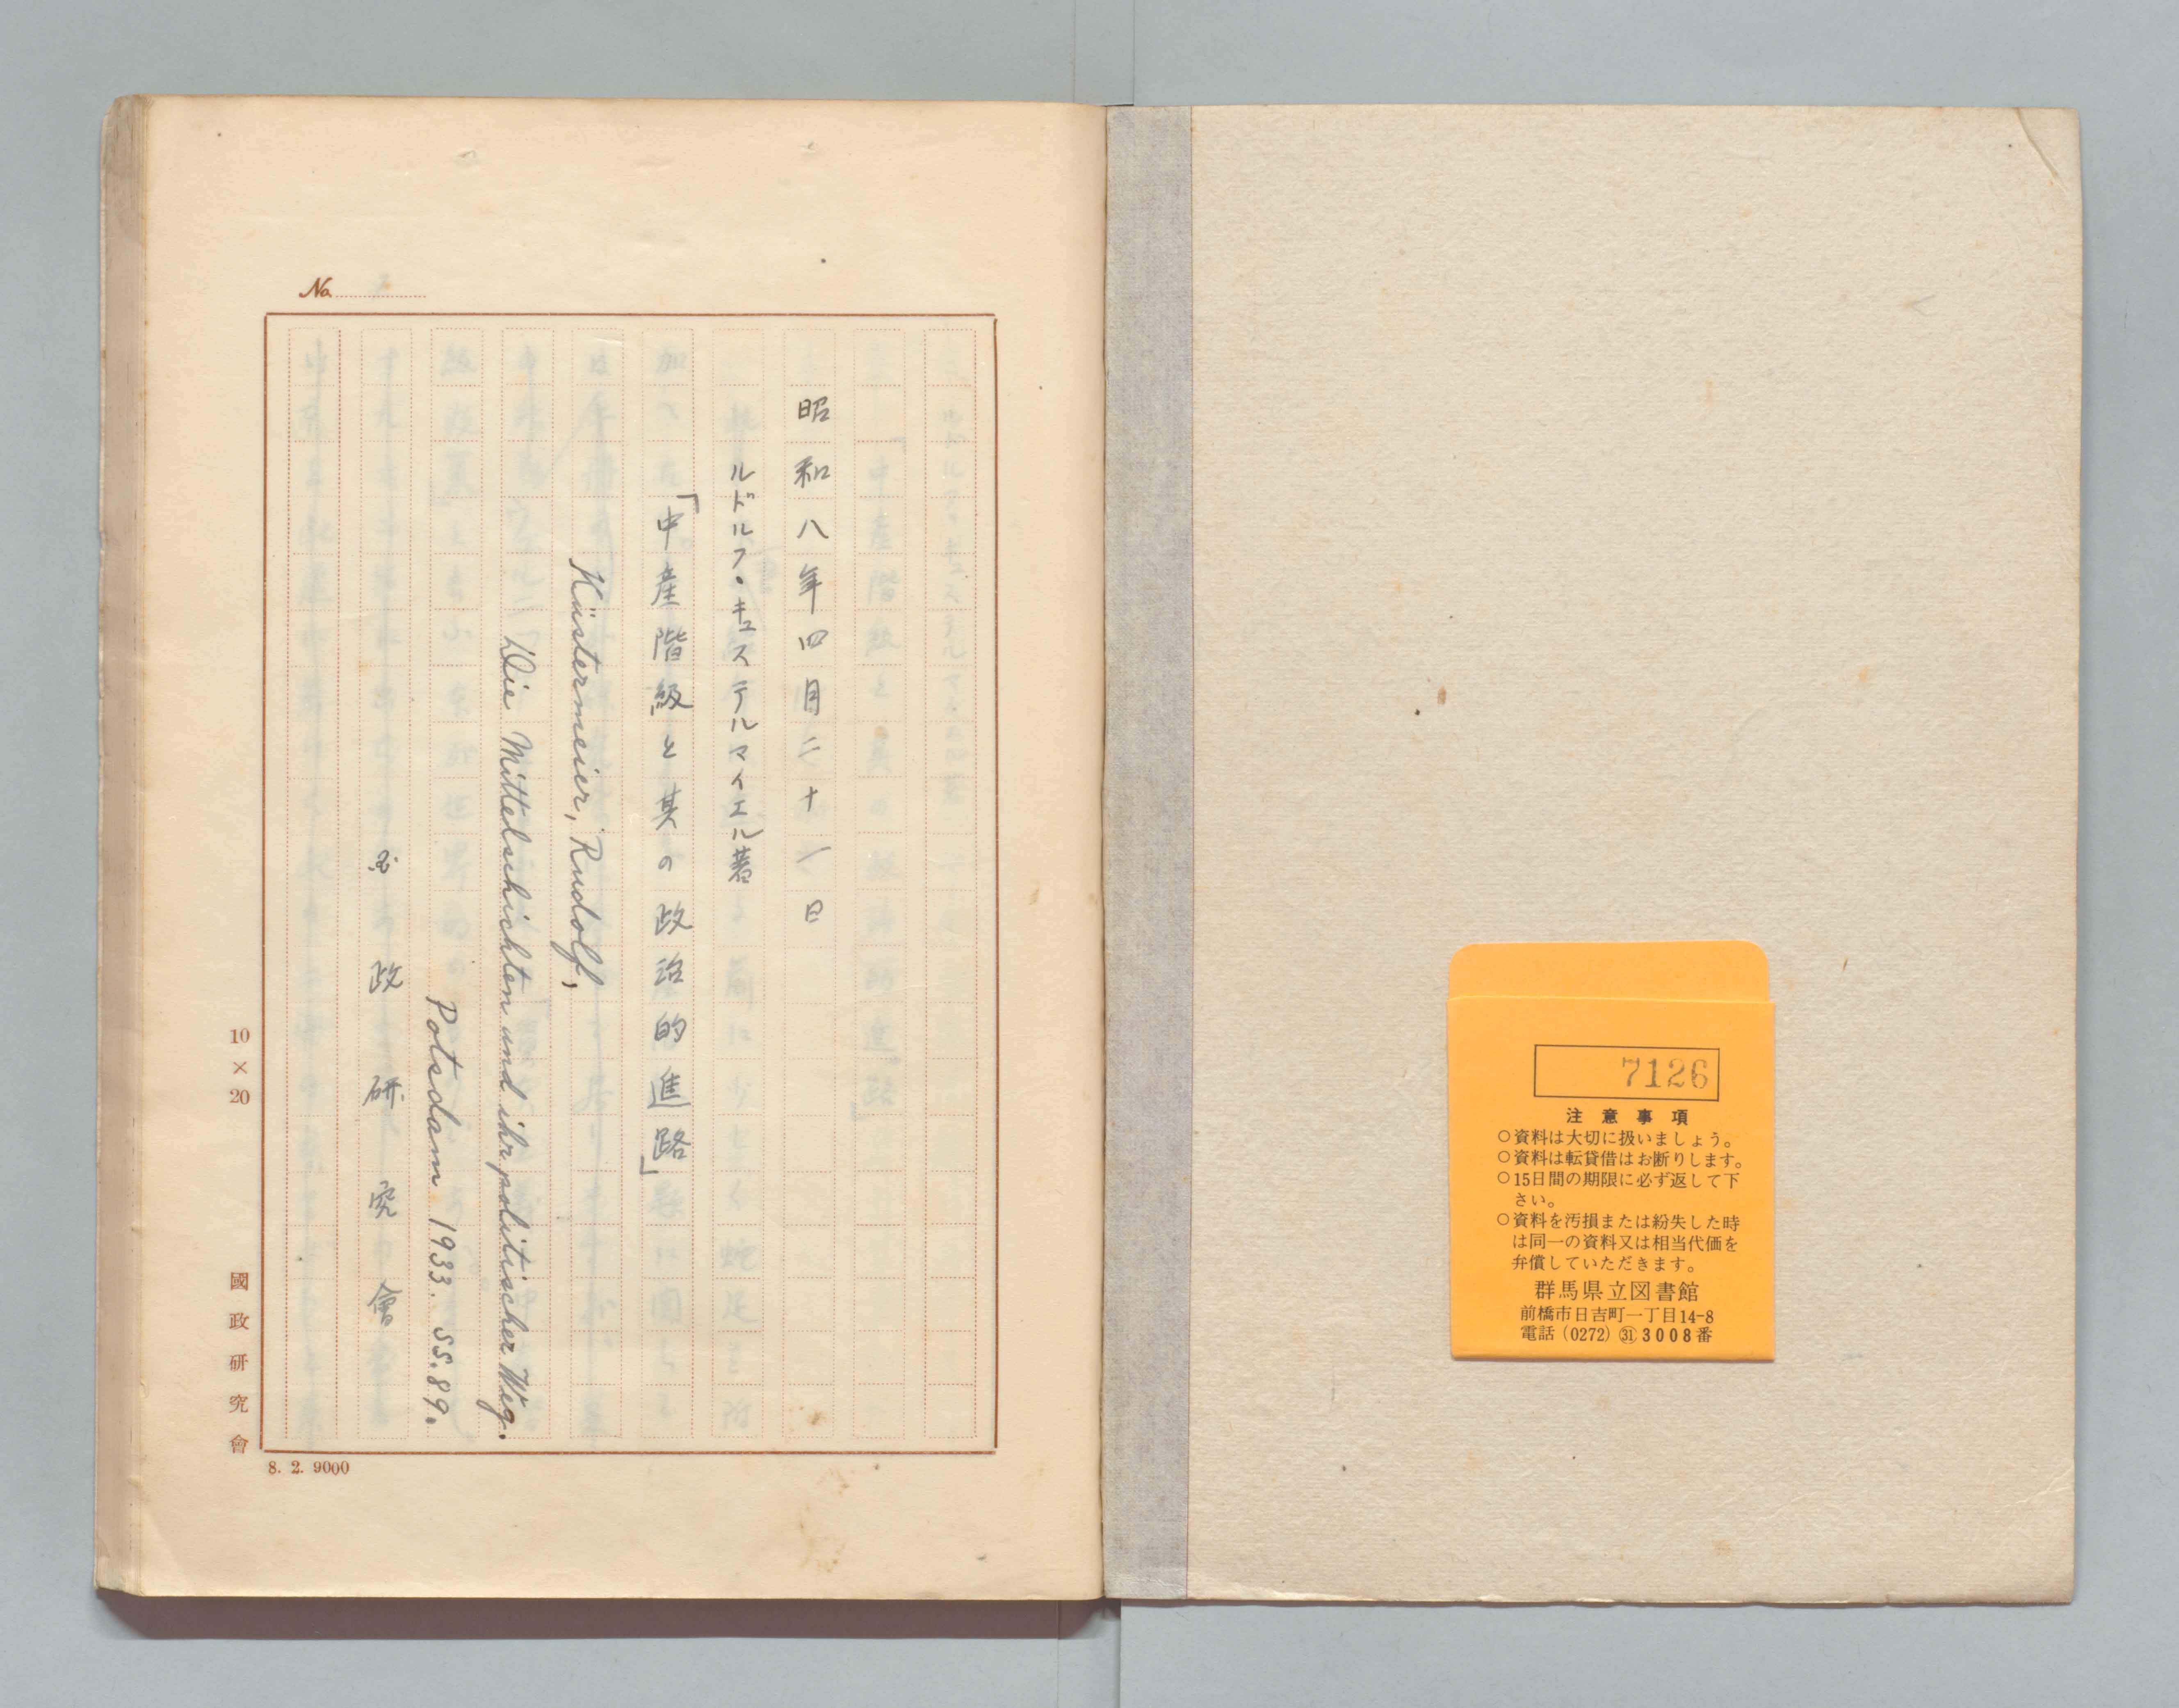 No.
昭和八年四月二十一日
ルドルフ・キュステルマイエル著
「中産階級と其の政治的進路」
Küstermeier, Rudolf,
Die Mittelschichten und ihr politischer Weg.
Potsdam 1933. SS.89.
政研究會
10×20
國政研究會
8. 2. 9000
7126
注意事項
○資料は大切に扱いましょう。
○資料は転貸借はお断りします。
○15日間の期限に必ず返して下
さい。
○資料を汚損または紛失した時
は同一の資料又は相当代価を
弁償していただきます。
群馬県立図書館
前橋市日吉町一丁目14-8
電話(0272)㉛3008番